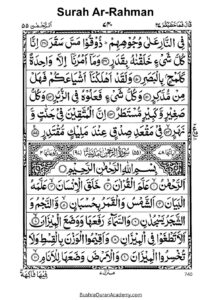 Surah Ar-Rahman
فِي النَّارِ عَلٰى وُجُوْهِهِمْ ذُوْقُوْا مَسَّ سَقَرَ ۝ اِنَّا
كُلَّ شَيْءٍ خَلَقْنٰهُ بِقَدَرٍ ۝ وَمَآ اَمْرُنَآ اِلَّا وَاحِدَةٌ
كَلَمْحٍۭ بِالْبَصَرِ ۝ وَلَقَدْ اَهْلَكْنَآ اَشْيَاعَكُمْ فَهَلْ
مِنْ مُّدَّكِرٍ ۝ وَكُلُّ شَيْءٍ فَعَلُوْهُ فِي الزُّبُرِ ۝ وَكُلُّ
صَغِيْرٍ وَّكَبِيْرٍ مُّسْتَطَرٌ ۝ اِنَّ الْمُتَّقِيْنَ فِيْ جَنّٰتٍ وَّ
نَهَرٍ ۝ فِيْ مَقْعَدِ صِدْقٍ عِنْدَ مَلِيْكٍ مُّقْتَدِرٍ ۝
بِسْمِ اللّٰهِ الرَّحْمٰنِ الرَّحِيْمِ
اَلرَّحْمٰنُ ۝ عَلَّمَ الْقُرْاٰنَ ۝ خَلَقَ الْاِنْسَانَ ۝ عَلَّمَهُ
الْبَيَانَ ۝ اَلشَّمْسُ وَالْقَمَرُ بِحُسْبَانٍ ۝ وَّالنَّجْمُ وَ
الشَّجَرُ يَسْجُدٰنِ ۝ وَالسَّمَآءَ رَفَعَهَا وَوَضَعَ الْمِيْزَانَ ۝
اَلَّا تَطْغَوْا فِي الْمِيْزَانِ ۝ وَاَقِيْمُوا الْوَزْنَ بِالْقِسْطِ وَلَا
تُخْسِرُوا الْمِيْزَانَ ۝ وَالْاَرْضَ وَضَعَهَا لِلْاَنَامِ ۝
فِيْهَا فَاكِهَةٌ
740
BushraQuranAcademy.com